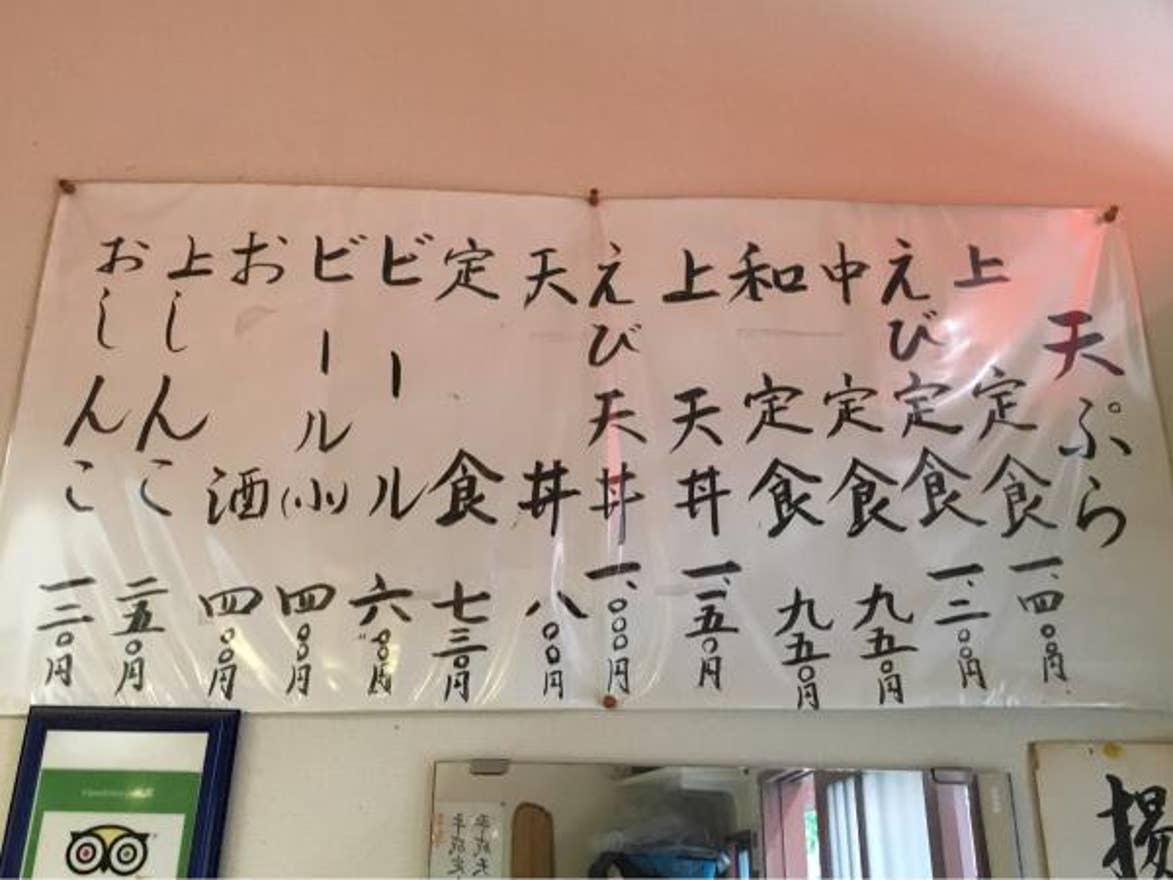 天ぷら
上定食 一、四〇〇円
えび定食 一、二〇〇円
中定食 九五〇円
和定食 九五〇円
上天丼 一、一五〇円
えび天丼 一、〇〇〇円
天丼 八〇〇円
定食 七三〇円
ビール 六〇〇円
ビール(小) 四〇〇円
お酒 四〇〇円
上しんこ 二五〇円
おしんこ 一二〇円
揚